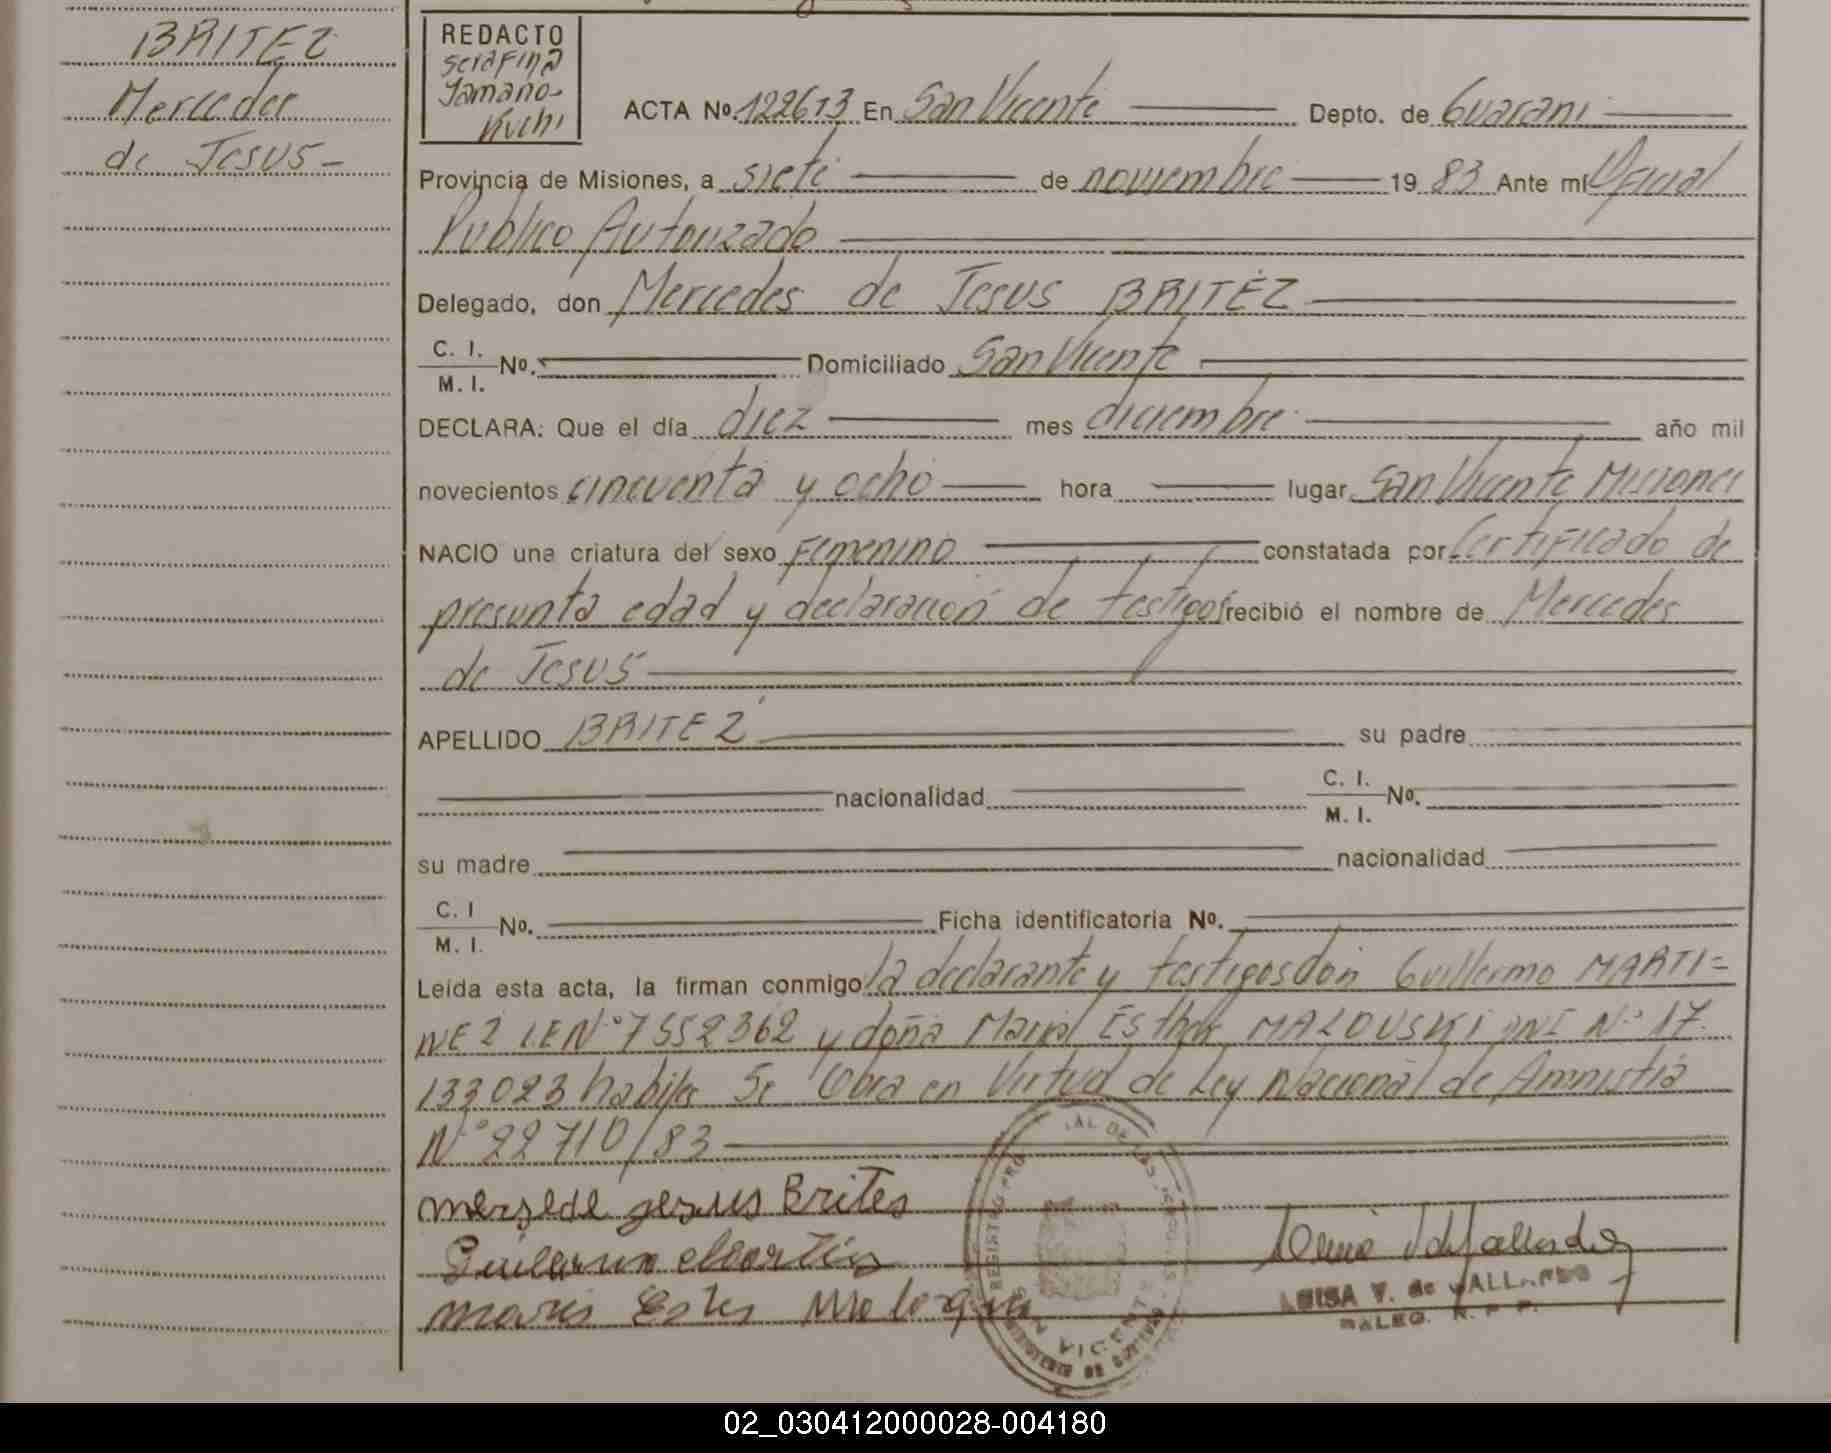 BRITEZ
Mercedes
de Jesus -
REDACTO
Serafina
Yamano-
Kuchi
ACTA Nº. 122613 En San Vicente Depto. de Guarani
Provincia de Misiones, a siete de noviembre 19 83 Ante mí Oficial
Publico Autorizado
Delegado, don Mercedes de Jesus BRITEZ
C. I. / M. I. Nº. Domiciliado San Vicente
DECLARA: Que el día diez mes diciembre año mil
novecientos cincuenta y ocho hora lugar San Vicente Misiones
NACIO una criatura del sexo Femenino constatada por Certificado de
presunta edad y declaración de testigos recibió el nombre de Mercedes
de Jesus
APELLIDO BRITEZ su padre
nacionalidad C. I. / M. I. Nº.
su madre nacionalidad
C. I / M. I. Nº. Ficha identificatoria Nº.
Leída esta acta, la firman conmigo la declarante y testigos don Guillermo MARTI=
NEZ L.E Nº 7552362 y doña Maria Esther MALOUSKI DNI Nº 17.
133023 habiles Se labra en Virtud de Ley Nacional de Amnistia
Nº 22710/83
mersede jesus Brites
LUISA V. de GALLARDO
DALEG. R. P. P.
REGISTRO PRO AL DE LAS PERSONAS
SAN VICENTE
02_030412000028-004180